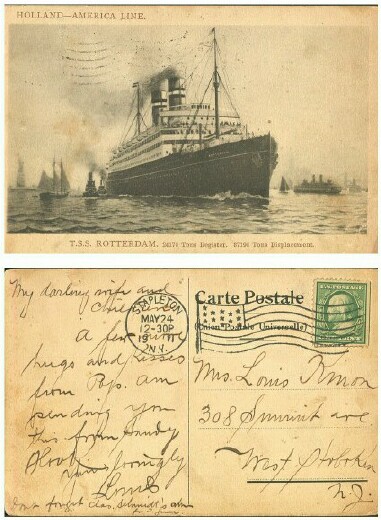 HOLLAND—AMERICA LINE.
T.S.S. ROTTERDAM. 24170 Tons Register. 37190 Tons Displacement.
My darling wife and
Children
A few
hugs and kisses
from Pop. am
sending you
this from Sandy
Hook
Your lovingly
Louis
Dont forget Chas. Schmidt's
STAPLETON
MAY 24
12-30P
1911
N.Y.
Carte Postale
(Union Postale Universelle)
U.S. POSTAGE
Mrs. Louis
308 Summit ave
West Hoboken
N.J.